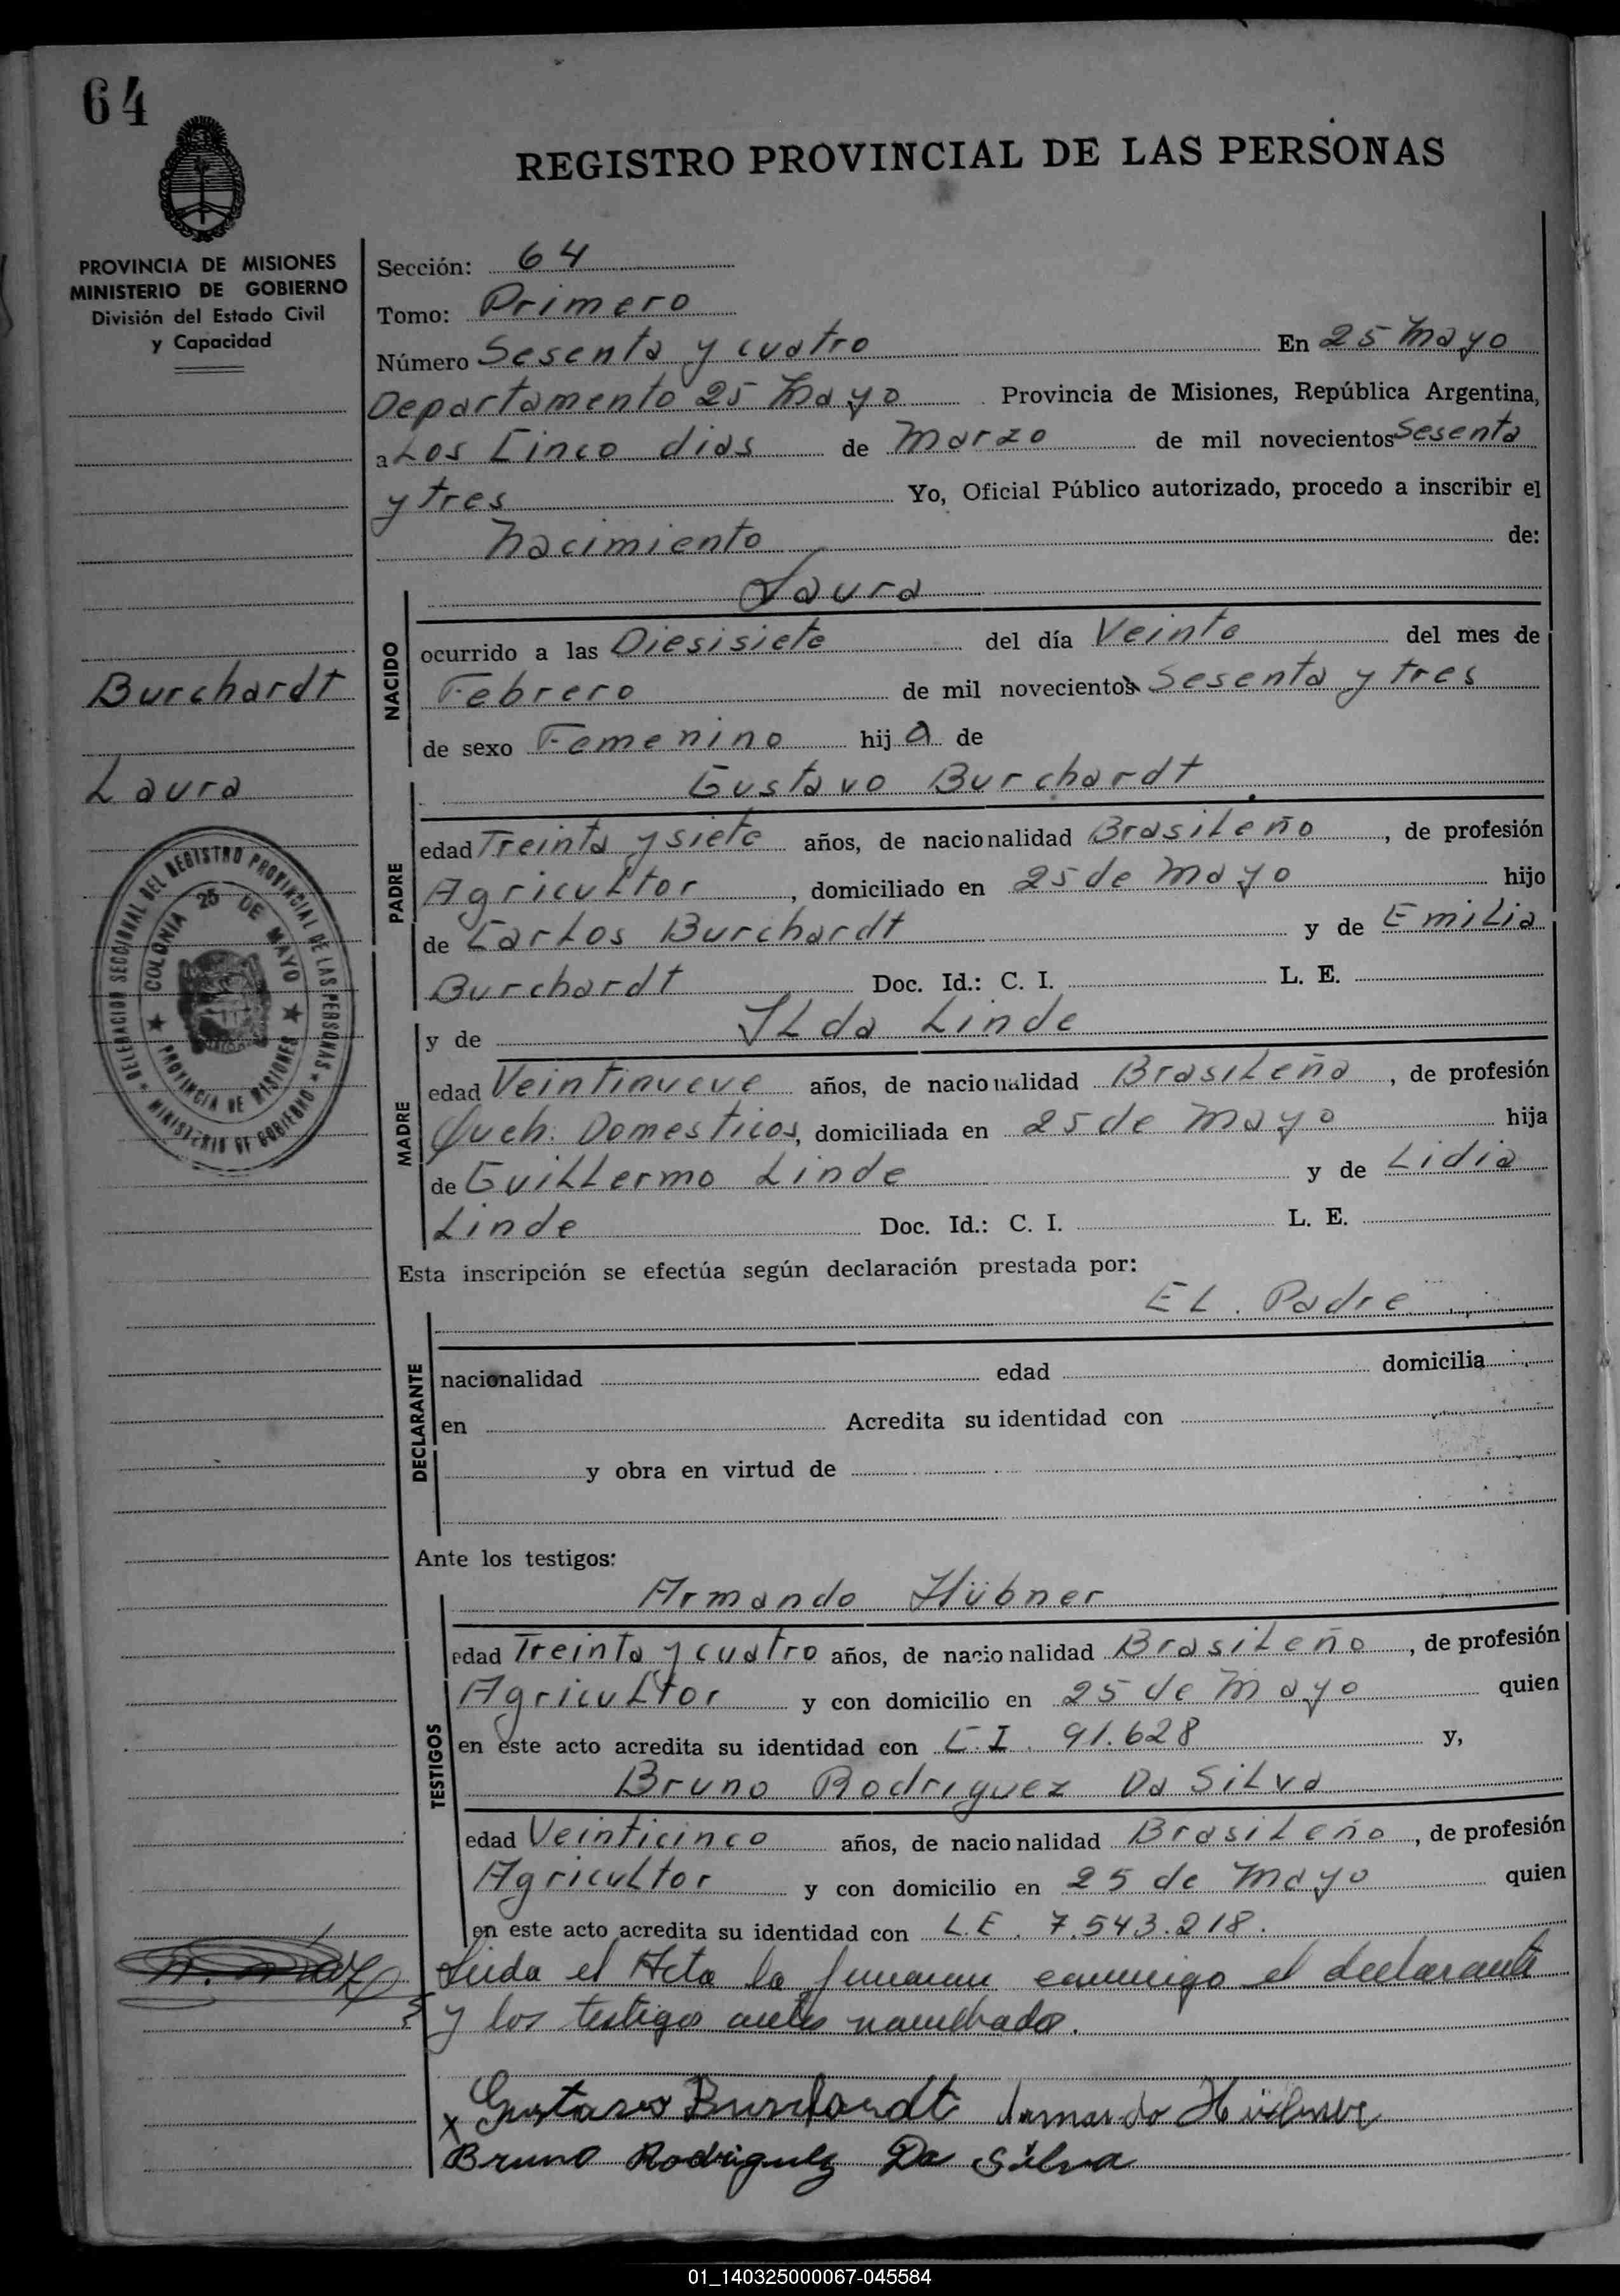 64
REGISTRO PROVINCIAL DE LAS PERSONAS
PROVINCIA DE MISIONES
MINISTERIO DE GOBIERNO
División del Estado Civil
y Capacidad
Sección: 64
Tomo: Primero
Número Sesenta y cuatro En 25 Mayo
Departamento 25 Mayo Provincia de Misiones, República Argentina,
a Los Cinco dias de Marzo de mil novecientos Sesenta
y tres Yo, Oficial Público autorizado, procedo a inscribir el
Nacimiento de:
Laura
NACIDO
ocurrido a las Diesisiete del día Veinte del mes de
Febrero de mil novecientos Sesenta y tres
de sexo Femenino hij a de
Burchardt
Laura
Gustavo Burchardt
PADRE
edad Treinta y siete años, de nacionalidad Brasileño, de profesión
Agricultor, domiciliado en 25 de Mayo hijo
de Carlos Burchardt y de Emilia
Burchardt Doc. Id.: C. I. L. E.
DELEGACION SECCIONAL DEL REGISTRO PROVINCIAL DE LAS PERSONAS
MINISTERIO DE GOBIERNO
COLONIA 25 DE MAYO
PROVINCIA DE MISIONES
y de Ilda Linde
MADRE
edad Veintinueve años, de nacionalidad Brasileña, de profesión
Queh. Domesticos, domiciliada en 25 de Mayo hija
de Guillermo Linde y de Lidia
Linde Doc. Id.: C. I. L. E.
Esta inscripción se efectúa según declaración prestada por:
El Padre
DECLARANTE
nacionalidad edad domicilia
en Acredita su identidad con
y obra en virtud de
Ante los testigos:
Armando Hübner
TESTIGOS
edad Treinta y cuatro años, de nacionalidad Brasileño, de profesión
Agricultor y con domicilio en 25 de Mayo quien
en este acto acredita su identidad con C.I. 91.628 y,
Bruno Rodriguez Da Silva
edad Veinticinco años, de nacionalidad Brasileño, de profesión
Agricultor y con domicilio en 25 de Mayo quien
en este acto acredita su identidad con L.E. 7.543.218.
Leida el Acta la firmaran conmigo el declarante
y los testigos antes nombrados.
x Gustavo Burchardt Armando Hübner
Bruno Rodriguez Da Silva
01_140325000067-045584